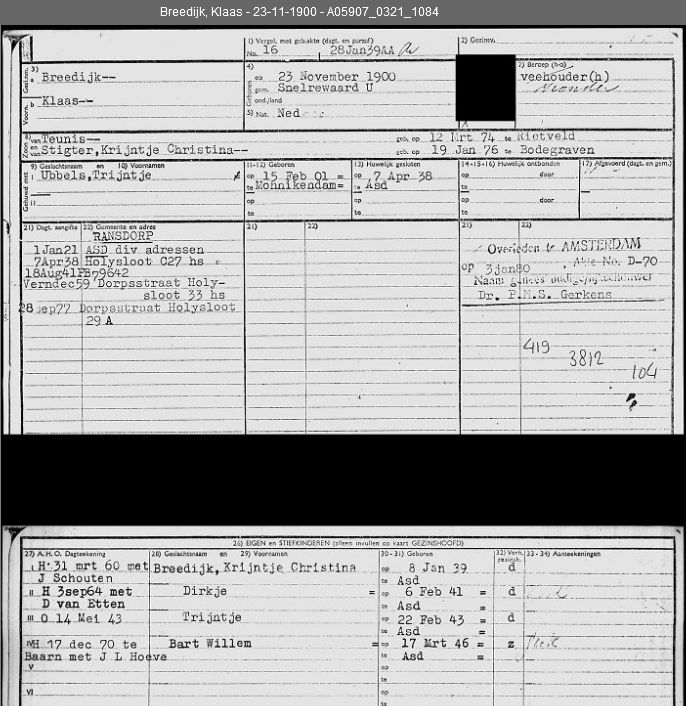 Breedijk, Klaas - 23-11-1900 - A05907_0321_1084
1) Vergel. met gebakte (dagt. en paraaf)
No. 16 28Jan39AA
2) Gezinsv.
3) Breedijk--
Klaas--
4)
op 23 November 1900
gem. Snelrewaard U
ond./land
5) Nat. Ned
7) Beroep (h-o)
veehouder(h)
6) van Teunis-- geb. op 12 Mrt 74 te Rietveld
en van Stigter,Krijntje Christina-- geb. op 19 Jan 76 te Bodegraven
9) Geslachtsnaam en 10) Voornamen
11-12) Geboren
13) Huwelijk gesloten
14-15-16) Huwelijk ontbonden
17) Afgevoerd (dagt. en gem.)
I Ubbels,Trijntje
op 15 Feb 01 =
te Monnikendam=
op 7 Apr 38
te Asd
op door
te
II
op
te
op
te
op door
te
21) Dagt. aangifte 22) Gemeente en adres
21) 22)
21) 22)
RANSDORP
1Jan21 ASD div adressen
7Apr38 Holysloot C27 hs
18Aug41PB79642
Verndec59 Dorpsstraat Holy-
sloot 33 hs
28sep77 Dorpsstraat Holysloot
29 A
Overleden te AMSTERDAM
op 3jan80 . Akte No. D-70
Dr. P.M.S. Gerkens
419
3812
104
26) EIGEN en STIEFKINDEREN (alleen invullen op kaart GEZINSHOOFD)
27) A.H.O. Dagteekening
28) Geslachtsnaam en 29) Voornamen
30-31) Geboren
32) Verh.
33-34) Aanteekeningen
I H 31 mrt 60 met Breedijk, Krijntje Christina op 8 Jan 39 d
J Schouten te Asd
II H 3sep64 met Dirkje = op 6 Feb 41 = d
D van Etten te Asd =
III O 14 Mei 43 Trijntje op 22 Feb 43 = d
te Asd =
IV H 17 dec 70 te Bart Willem = op 17 Mrt 46 = z
Baarn met J L Hoeve te Asd =
V op
te
VI op
te